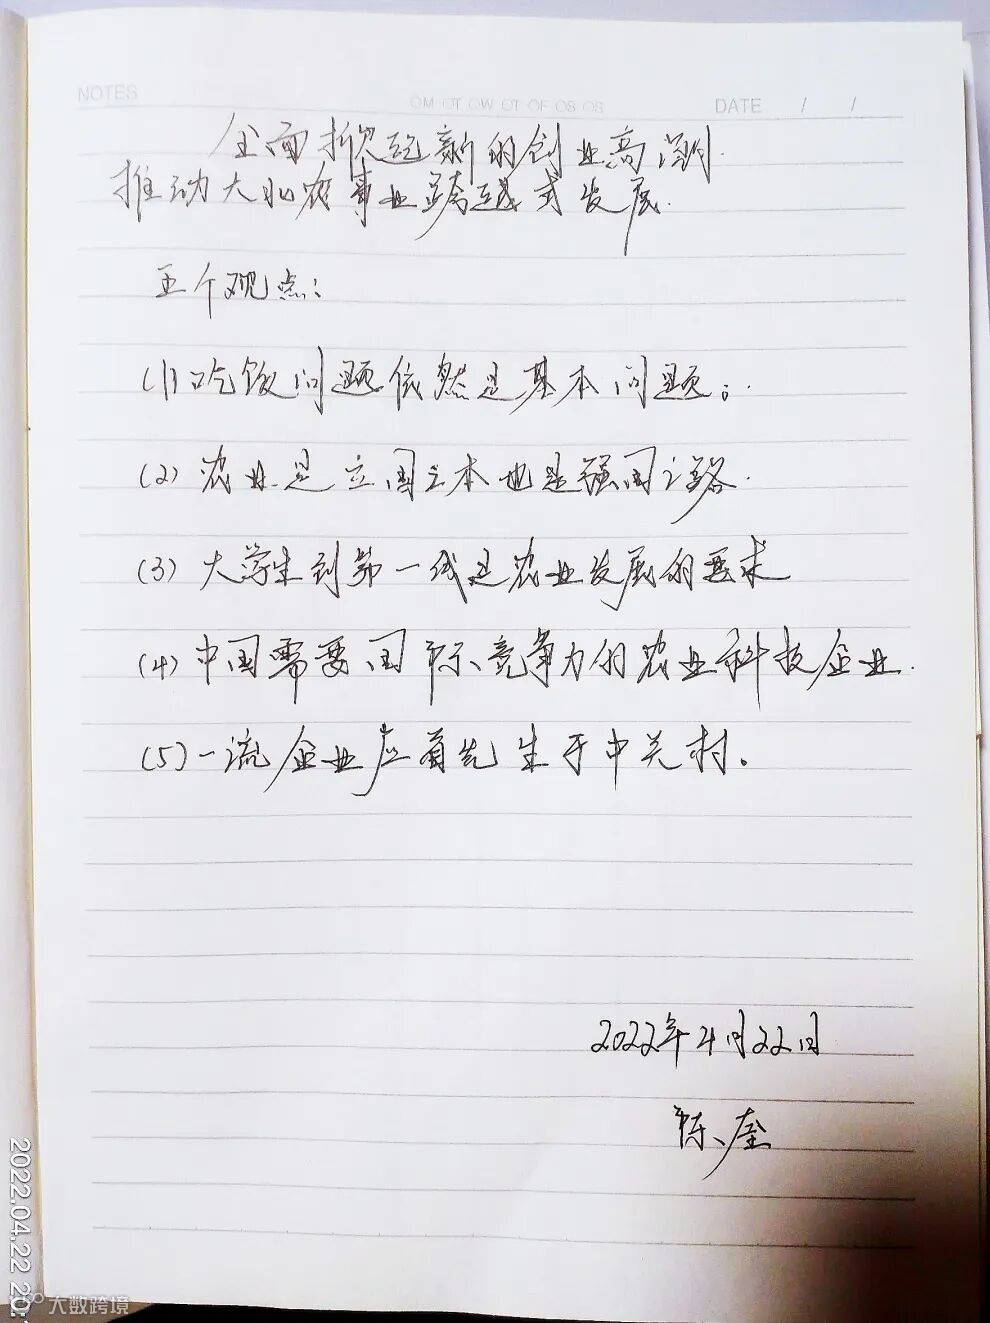 NOTES
OM OT OW OT OF OS OS
DATE / /
全面掀起新的创业高潮.
推动大北农事业跨越式发展.
五个观点:
(1)吃饭问题依然是基本问题;
(2)农业是立国之本也是强国之路.
(3)大学生到第一线是农业发展的要求
(4)中国需要国际竞争力的农业科技企业.
(5)一流企业应首先生于中关村。
2022年4月22日
陈奎
2022.04.22 20:
大数跨境